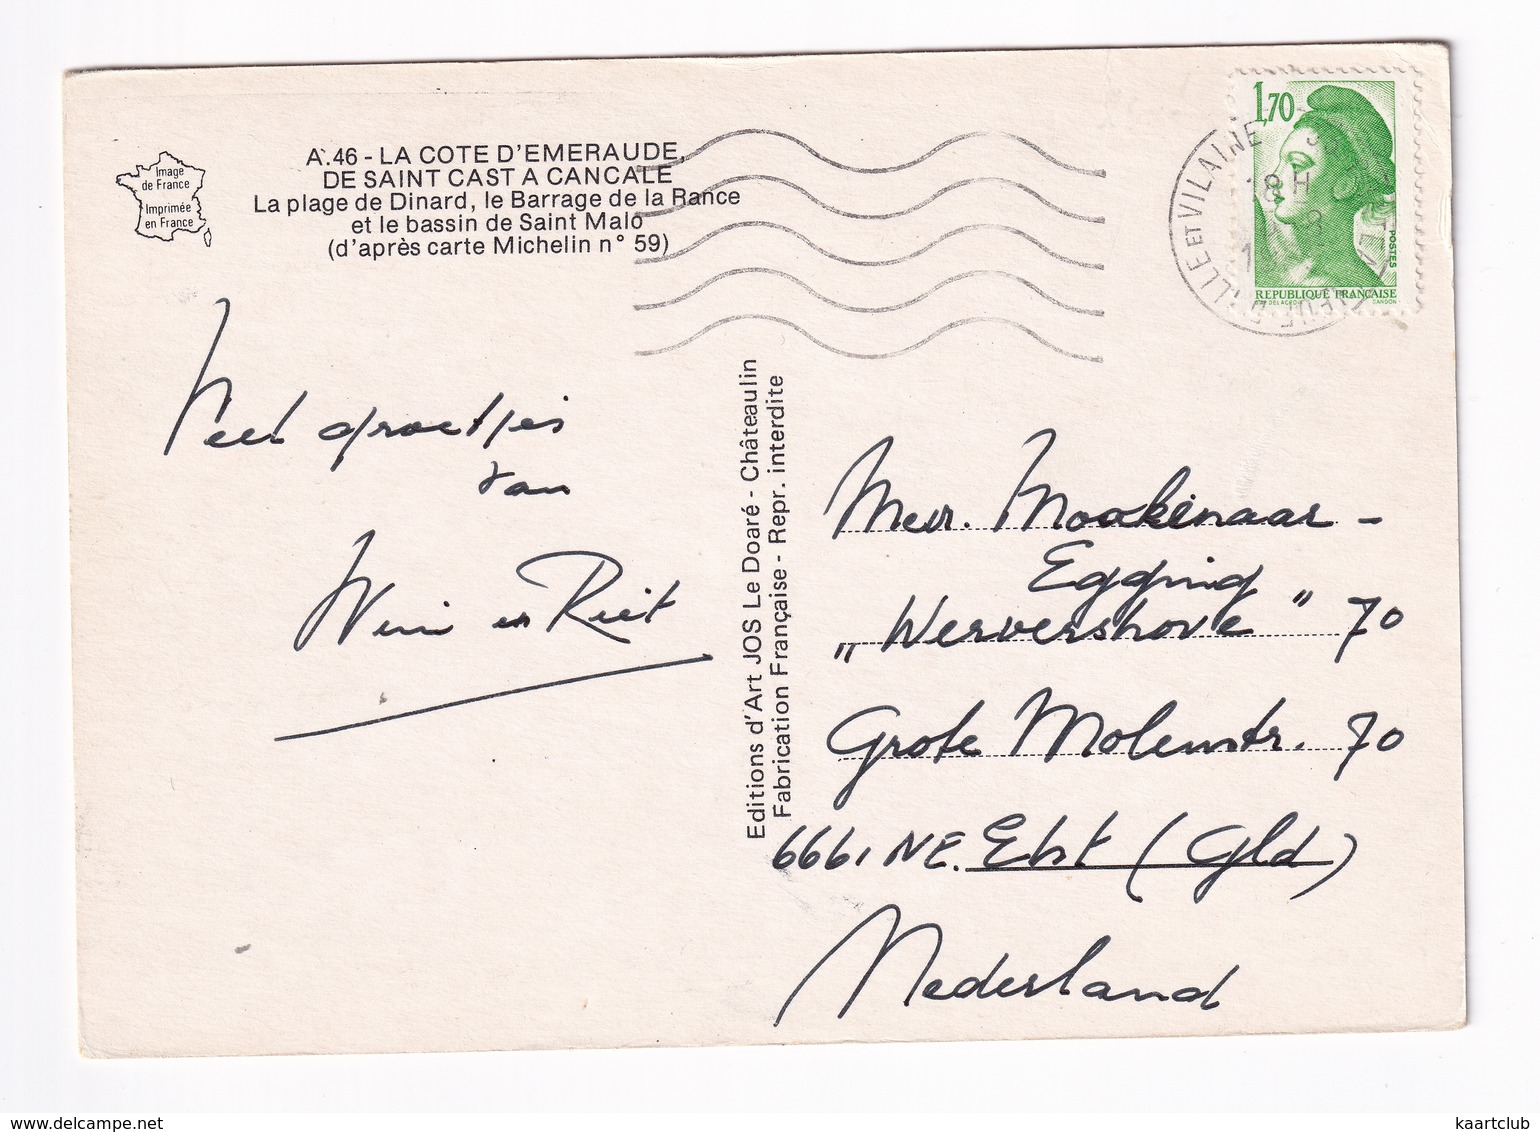 Image
de France
Imprimée
en France
A.46 - LA COTE D'EMERAUDE,
DE SAINT CAST A CANCALE
La plage de Dinard, le Barrage de la Rance
et le bassin de Saint Malo
(d'après carte Michelin n° 59)
1,70
POSTES
REPUBLIQUE FRANÇAISE
GANDON
ILLE ET VILAINE
18 H
Veel groetjes
van
Wim en Riet
Editions d'Art JOS Le Doaré - Châteaulin
Fabrication Française - Repr. interdite
Mevr. Mookenaar -
Egging
"Wervershove" 70
Grote Molenstr. 70
6661 NE. Elst (Gld)
Nederland
www.delcampe.net
kaartclub